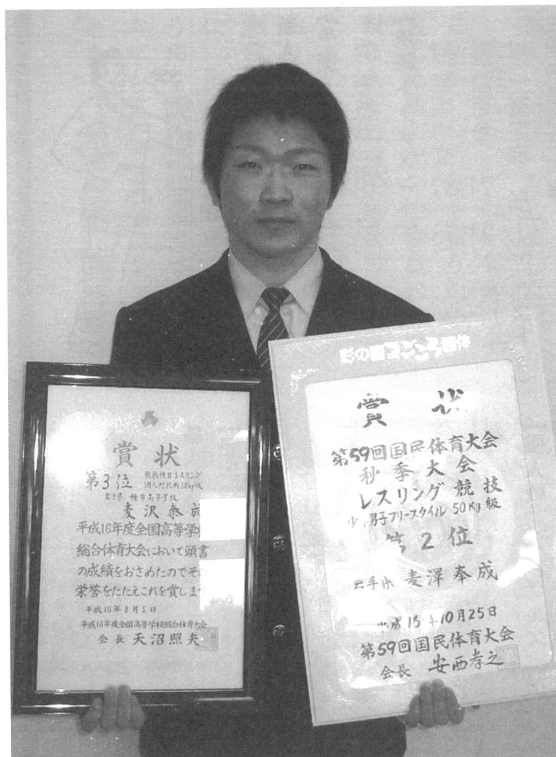 賞状
第3位 競技種目 レスリング
個人対抗戦 50kg級
岩手県 種市高等学校
麦沢泰成
平成16年度全国高等学校
総合体育大会において頭書
の成績をおさめたのでその
栄誉をたたえこれを賞しま
平成16年8月
平成16年度全国高等学校総合体育大会
会長 天沼照夫
彩の国まごころ国体
賞 状
第59回国民体育大会
秋季大会
レスリング競技
少 男子フリースタイル 50Kg級
第2位
岩手県 麦澤奉成
成15年10月25日
第59回国民体育大会
会長 安西孝之